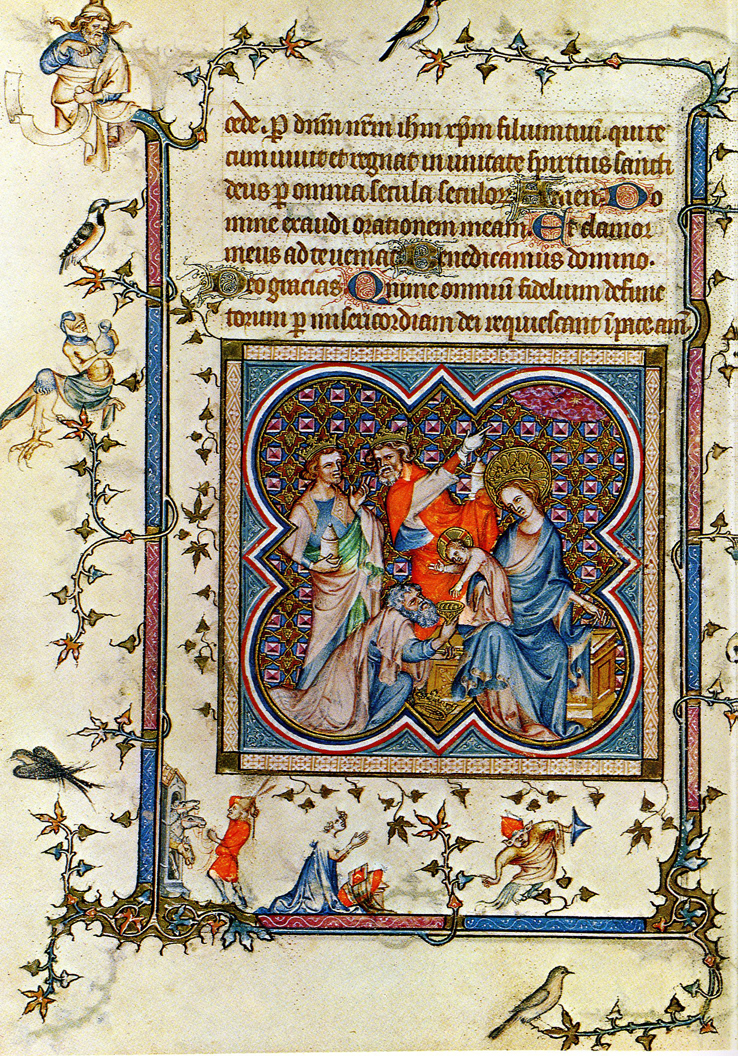 cede. p dnm nrm ihm xpm filium tuū. qui te
cum uiuit et regnat in unitate spiritus sancti
deus p omnia secula seculor Amen. Do
mine exaudi orationem meam. Et clamor
meus ad te ueniat Benedicamus domino.
Deo gracias. Anime omniū fidelium defunc
torum p misericordiam dei requiescant ī pace am